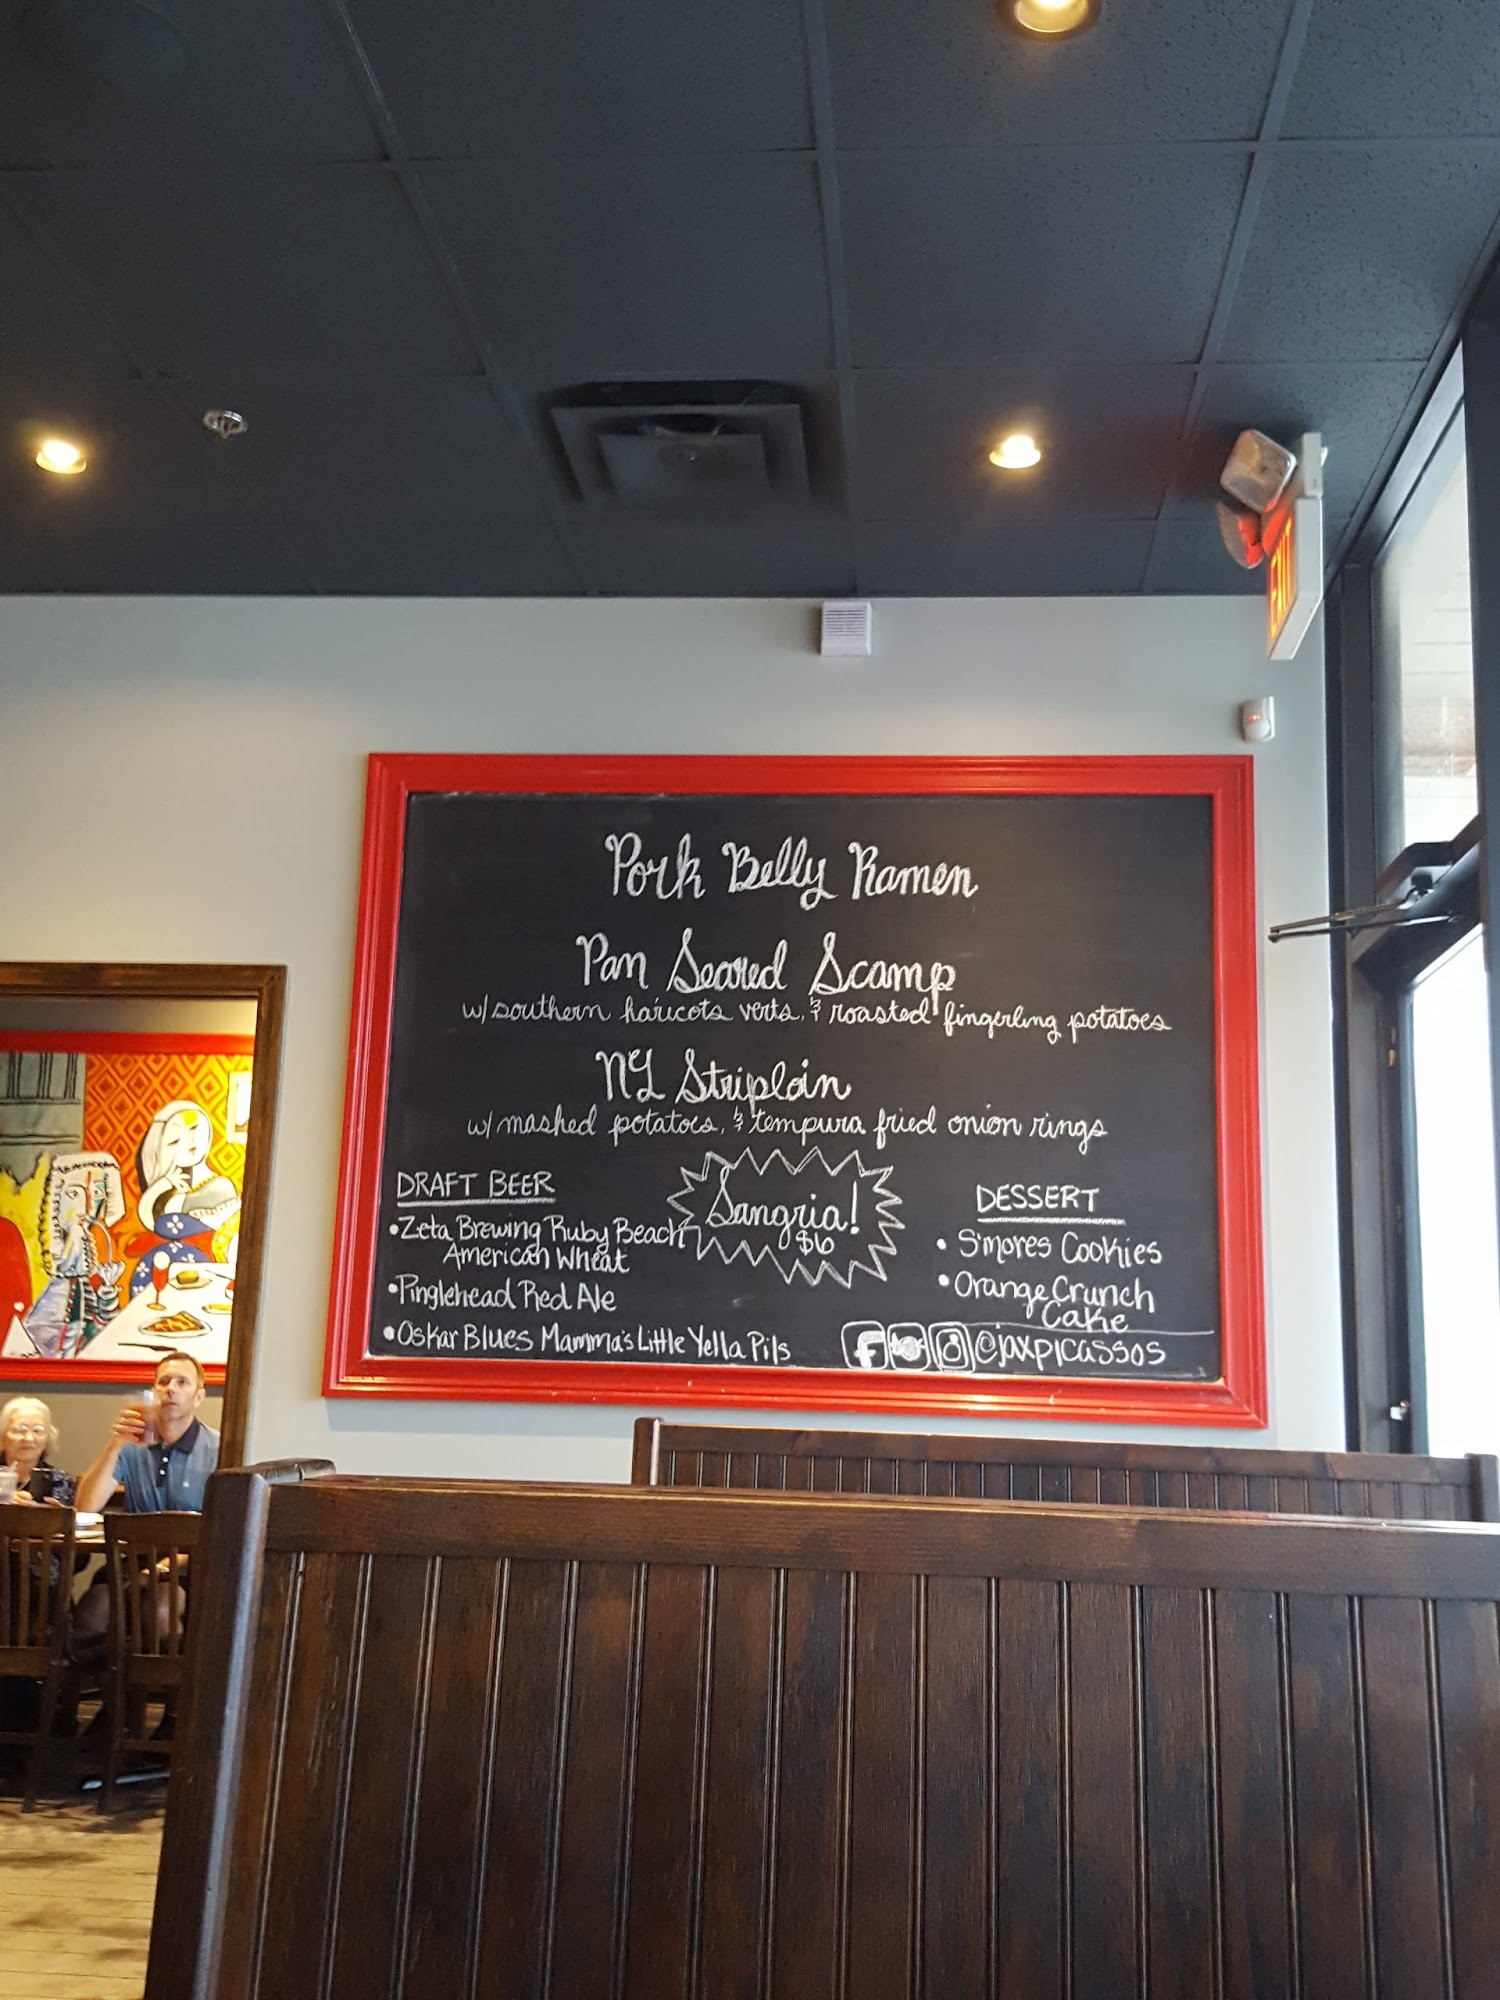 EXIT
Pork Belly Ramen
Pan Seared Scamp
w/ southern haricots verts, & roasted fingerling potatoes
NY Striploin
w/ mashed potatoes, & tempura fried onion rings
DRAFT BEER
• Zeta Brewing Ruby Beach
American Wheat
• Pinglehead Red Ale
• Oskar Blues Mamma's Little Yella Pils
Sangria!
$6
DESSERT
• S'mores Cookies
• Orange Crunch
Cake
f @jaxpicassos